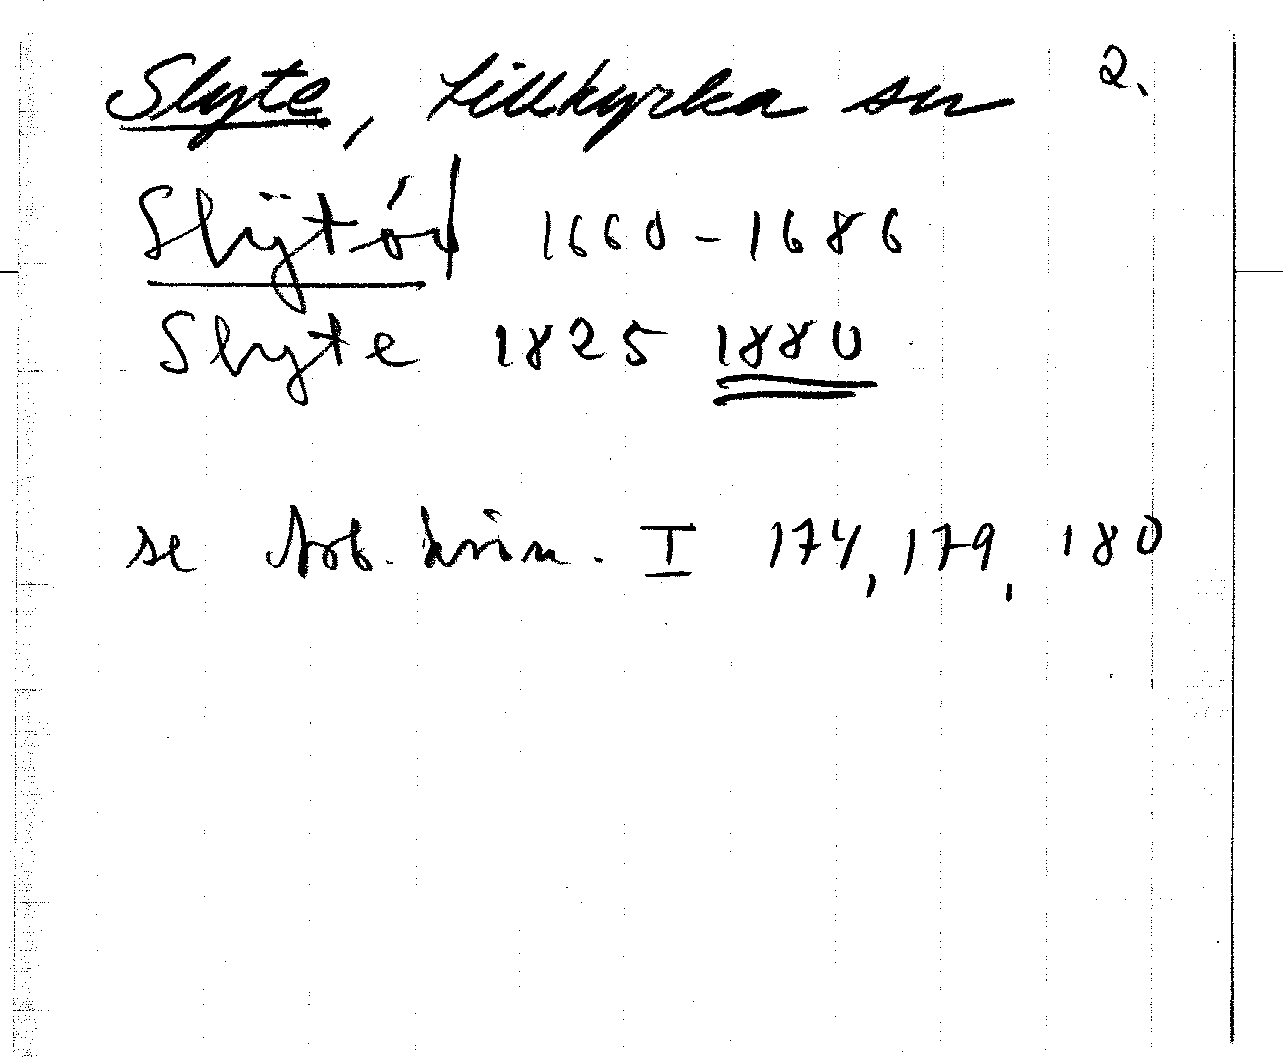 Slyte, Lillkyrka sn 2.
Slÿtó| 1660-1686
Slyte 1825 1880
se Arb. känn. I 174, 179, 180